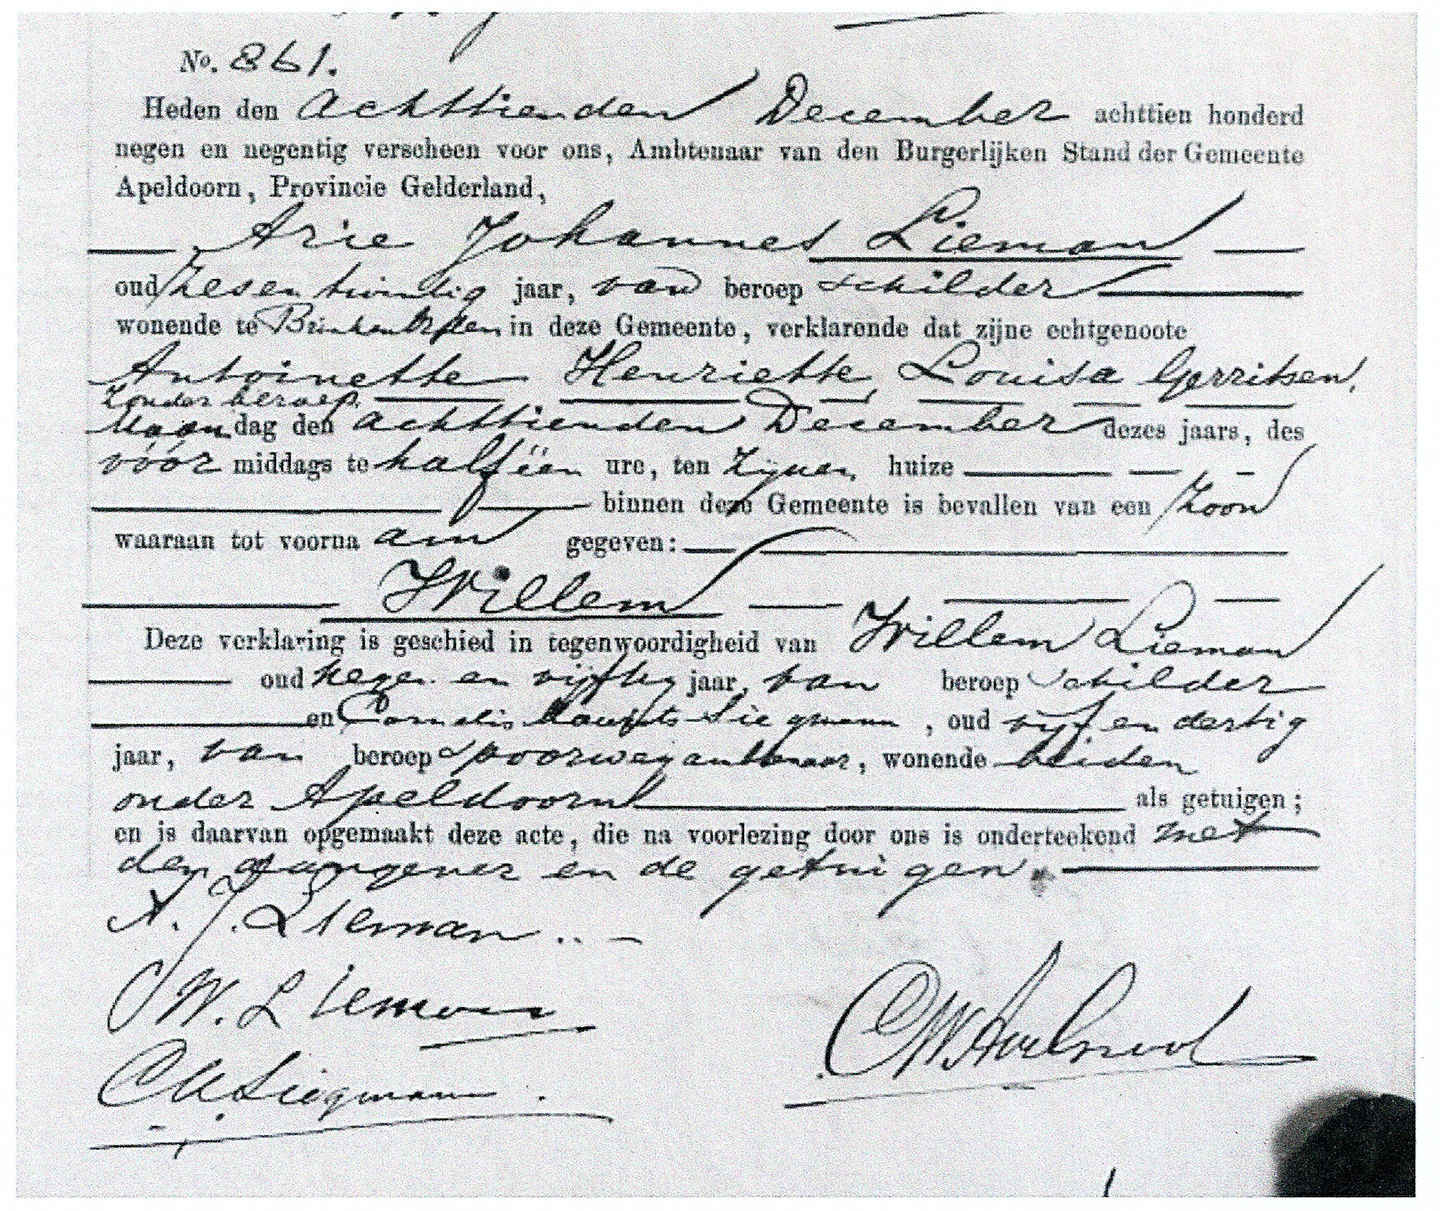 No. 861.
Heden den achttienden December achttien honderd
negen en negentig verscheen voor ons, Ambtenaar van den Burgerlijken Stand der Gemeente
Apeldoorn, Provincie Gelderland,
Arie Johannes Lieman
oud zesentwintig jaar, van beroep schilder
wonende te in deze Gemeente, verklarende dat zijne echtgenoote
Antoinette Henriette Louisa Gerritsen,
zonder beroep,
Maandag den achttienden December dezes jaars, des
vóór middags te half één ure, ten zijnen huize
binnen deze Gemeente is bevallen van een zoon
waaraan tot voornaam gegeven:
Willem
Deze verklaring is geschied in tegenwoordigheid van Willem Lieman
oud negen en vijftig jaar, van beroep schilder
en Cornelis Siegmann, oud vijf en dertig
jaar, van beroep spoorwegambtenaar, wonende beiden
onder Apeldoorn als getuigen;
en is daarvan opgemaakt deze acte, die na voorlezing door ons is onderteekend met
den aangever en de getuigen.
A. J. Lieman
W. Lieman
C M. Siegmann.